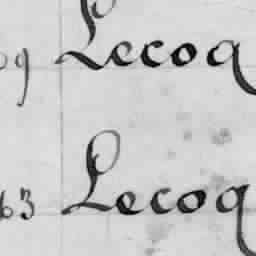 09 Lecoq
63 Lecoq